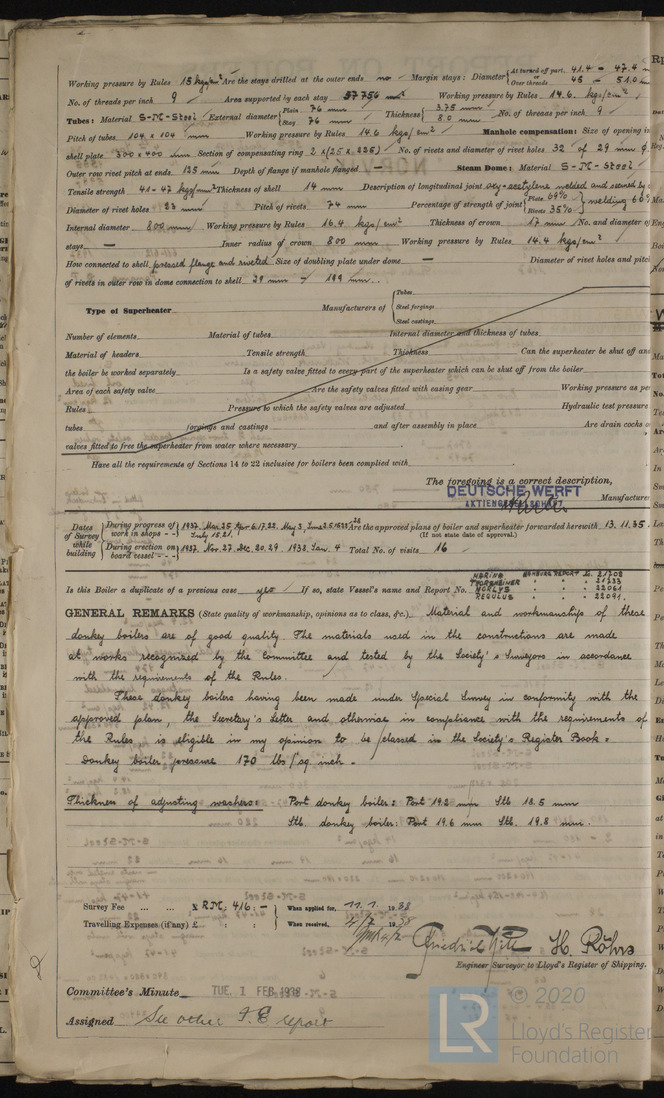 At turned off part. 41.4 - 47.4 m
Working pressure by Rules 15 kgs/cm² Are the stays drilled at the outer ends no Margin stays: Diameter
Over threads 45 - 51.0
No. of threads per inch 9 Area supported by each stay 37756 mm² Working pressure by Rules 14.6. kgs/cm²
Tubes: Material S-M-Steel External diameter Plate 76 mm Stay 76 mm Thickness 3.75 mm 8.0 mm No. of threads per inch 9
Pitch of tubes 104 x 104 mm Working pressure by Rules 14.6 kgs/cm² Manhole compensation: Size of opening in
shell plate 300 x 400 mm Section of compensating ring 2 x (25 x 225) No. of rivets and diameter of rivet holes 32 of 29 mm
Outer row rivet pitch at ends 125 mm Depth of flange if manhole flanged — Steam Dome: Material S-M-Steel
Tensile strength 41-47 kgs/mm² Thickness of shell 14 mm Description of longitudinal joint oxy-acetylene welded and
Diameter of rivet holes 23 mm Pitch of rivets 74 mm Percentage of strength of joint Plate 69% Rivets 35% welding 60%
Internal diameter 800 mm Working pressure by Rules 16.4 kgs/cm² Thickness of crown 17 mm No. and diameter of
stays — Inner radius of crown 800 mm Working pressure by Rules 14.4 kgs/cm²
How connected to shell pressed flange and riveted Size of doubling plate under dome — Diameter of rivet holes and pitch
of rivets in outer row in dome connection to shell 29 mm - 199 mm.
Type of Superheater Manufacturers of Tubes Steel forgings Steel castings
Number of elements Material of tubes Internal diameter and thickness of tubes
Material of headers Tensile strength Thickness Can the superheater be shut off and
the boiler be worked separately Is a safety valve fitted to every part of the superheater which can be shut off from the boiler
Area of each safety valve Are the safety valves fitted with easing gear Working pressure as per
Rules Pressure to which the safety valves are adjusted Hydraulic test pressure
tubes forgings and castings and after assembly in place Are drain cocks or
valves fitted to free the superheater from water where necessary
Have all the requirements of Sections 14 to 22 inclusive for boilers been complied with
The foregoing is a correct description,
DEUTSCHE WERFT
AKTIENGESELLSCHAFT
Manufacturer
Dates of Survey while building During progress of work in shops - - 1937. Mar. 25 Apr. 6.17.22. May 3, June 2.5.15.23.28 July 15.21. Are the approved plans of boiler and superheater forwarded herewith 13.11.35.
(If not state date of approval.)
During erection on board vessel - - - 1937. Nov. 27. Dec. 20.29. 1938. Jan. 4 Total No. of visits 16
Is this Boiler a duplicate of a previous case yes If so, state Vessel's name and Report No.
HAMBURG REPORT No. 21702
THORSHEIMER " " 21733
NORLYS " " 22061
REGULUS " " 22091.
GENERAL REMARKS (State quality of workmanship, opinions as to class, &c.) Material and workmanship of these
donkey boilers are of good quality. The materials used in the constructions are made
at works recognized by the Committee and tested by the Society's Surveyors in accordance
with the requirements of the Rules.
These donkey boilers having been made under Special Survey in conformity with the
approved plan, the Secretary's Letter and otherwise in compliance with the requirements of
the Rules, is eligible in my opinion to be classed in the Society's Register Book =
Donkey boiler pressure 170 lbs/sq. inch -
Thickness of adjusting washers: Port donkey boiler: Port 19.2 mm Stb 18.5 mm
Stb. donkey boiler: Port 19.6 mm Stb. 19.8 mm.
Survey Fee ... ... £ RM: 416: - When applied for, 11.1. 1938
Travelling Expenses (if any) £ : : When received, 4/2 1938
H. Röhrs
Engineer Surveyor to Lloyd's Register of Shipping.
Committee's Minute TUE. 1 FEB 1938
Assigned See other F.E. report
© 2020
LR
Lloyd's Register
Foundation